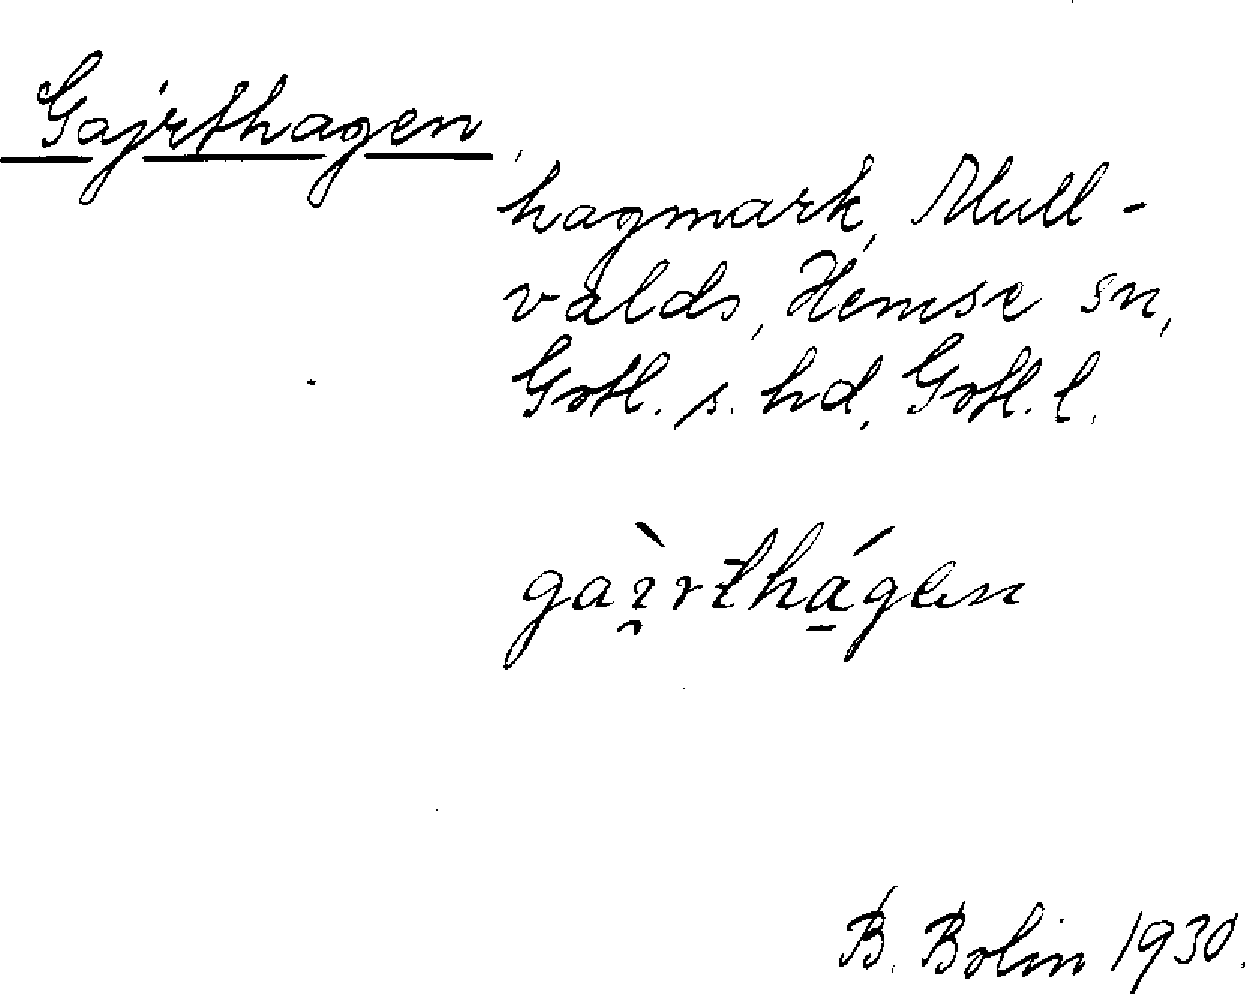 Gajrthagen,
hagmark, Mull-
valds, Hemse sn,
Gotl. s. hd, Gotl. l.
B. Bolin 1930.